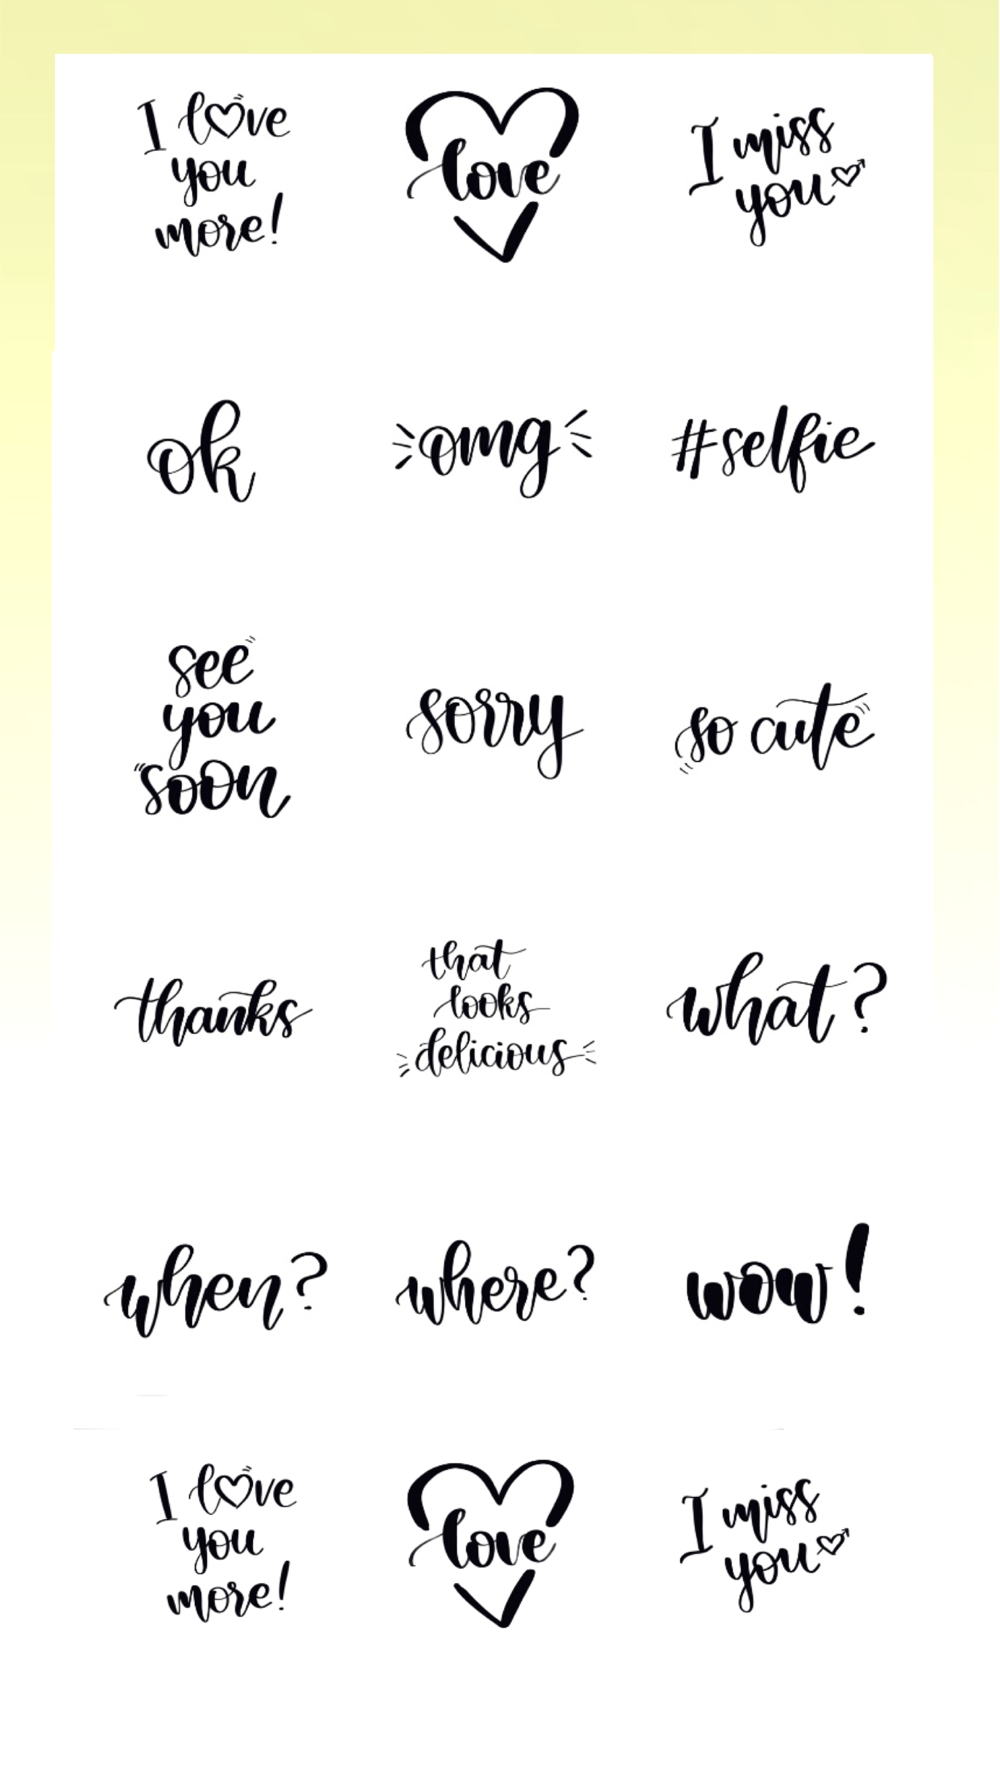 I love
you
more!
love
I miss
you
ok
omg
#selfie
see
you
soon
sorry
so cute
thanks
that
looks
delicious
what?
when?
where?
wow!
I love
you
more!
love
I miss
you